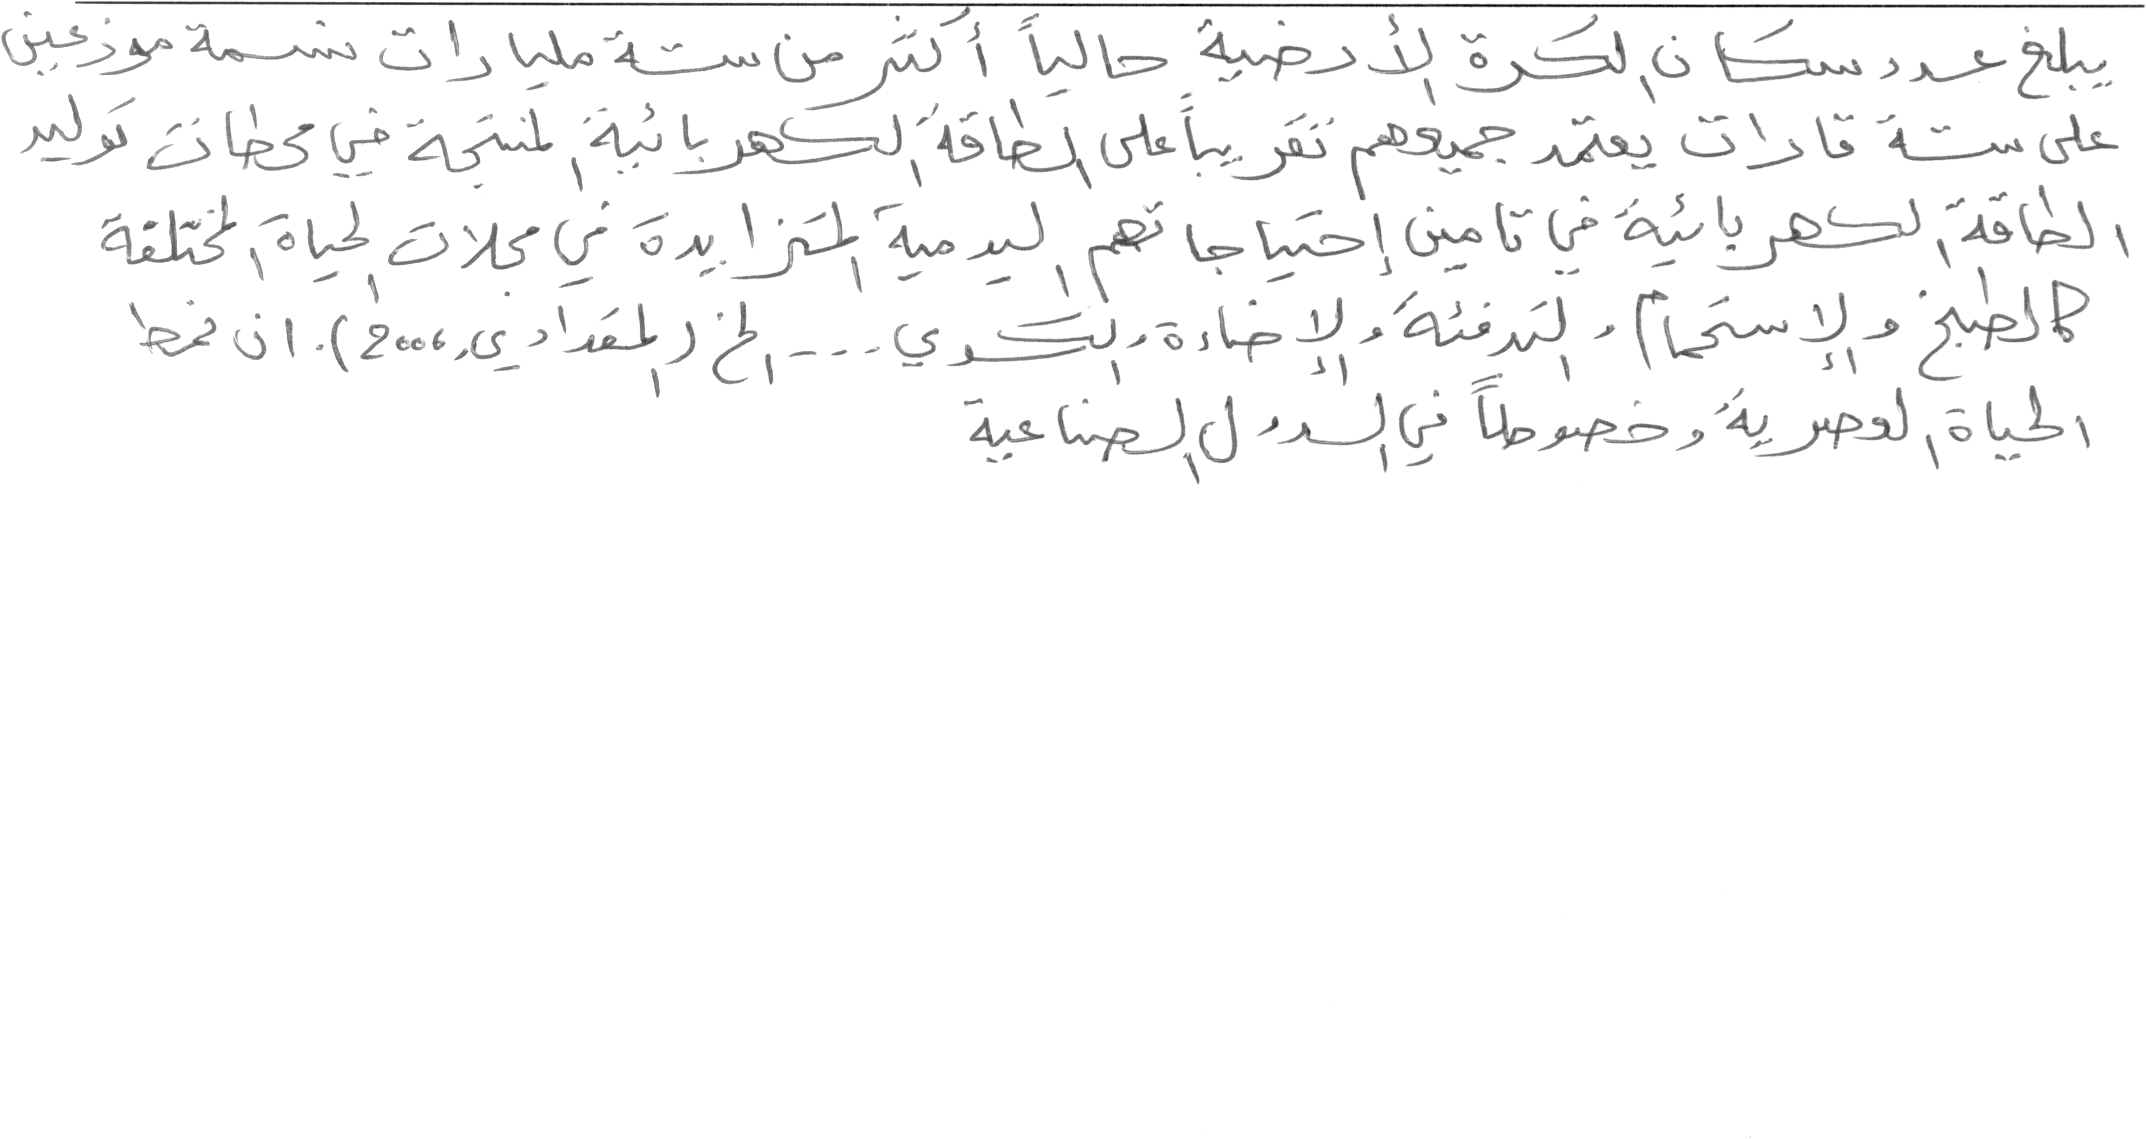 يبلغ عدد سكان الكرة الأرضية حالياً أكثر من ستة مليارات نسمة موزعين
على ستة قارات يعتمد جميعهم تقريباً على الطاقة الكهربائية المنتجة في محطات توليد
الطاقة الكهربائية في تامين إحتياجاتهم اليومية المتزايدة في مجلات الحياة المختلفة
كالطبخ والإستحمام والتدفئة والإضاءة والكوي ---- الخ (المقدادي, 2006). ان نمط
الحياة العصرية وخصوصاً في الدول الصناعية